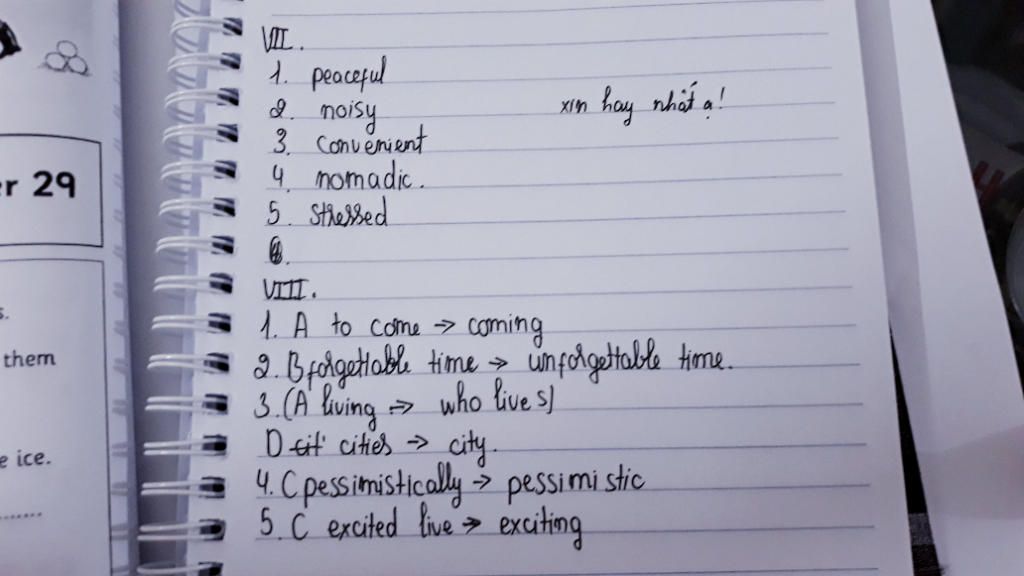 r 29
s.
them
e ice.
........
VII.
1. peaceful
2. noisy
xin hay nhất ạ!
3. convenient
4. nomadic.
5. stressed
VIII.
1. A to come → coming
2. B forgettable time → unforgettable time.
3. (A living => who lives)
D cit cities → city.
4. C pessimistically → pessimistic
5. C excited live → exciting